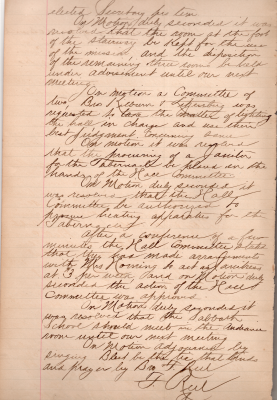 elected Secretary pro tem
On Motion duly seconded it was
resolved that the room at the foot
of the stairway be kept for the use
of the museum and the disposition
of the remaining three rooms be held
under advisement until our next
meeting.
On motion a Committee of
two, Bro Brown & was
requested to have the matter of lighting
the halls in charge and use their
best judgment concerning same
On motion it was resolved
that the procuring of a Janitor
for the Tabernacle be placed in the
hands of the Hall Committee.
On Motion duly seconded it
was resolved that the Hall
Committee be authorized to
procure heating apparatus for the
Tabernacle
After a conference of a few
minutes the Hall Committee stated
that they has made arrangements
with Mrs to act as Janitress
at 3 per week and on Motion duly
seconded the action of the Hall
Committee was approved.
On Motion duly seconded it
was resolved that the Sabbath
School should meet in the audience
room until our next meeting
On Motion adjourned by
singing Blest be the tie that binds
and prayer by Bro F Reel
F Reel